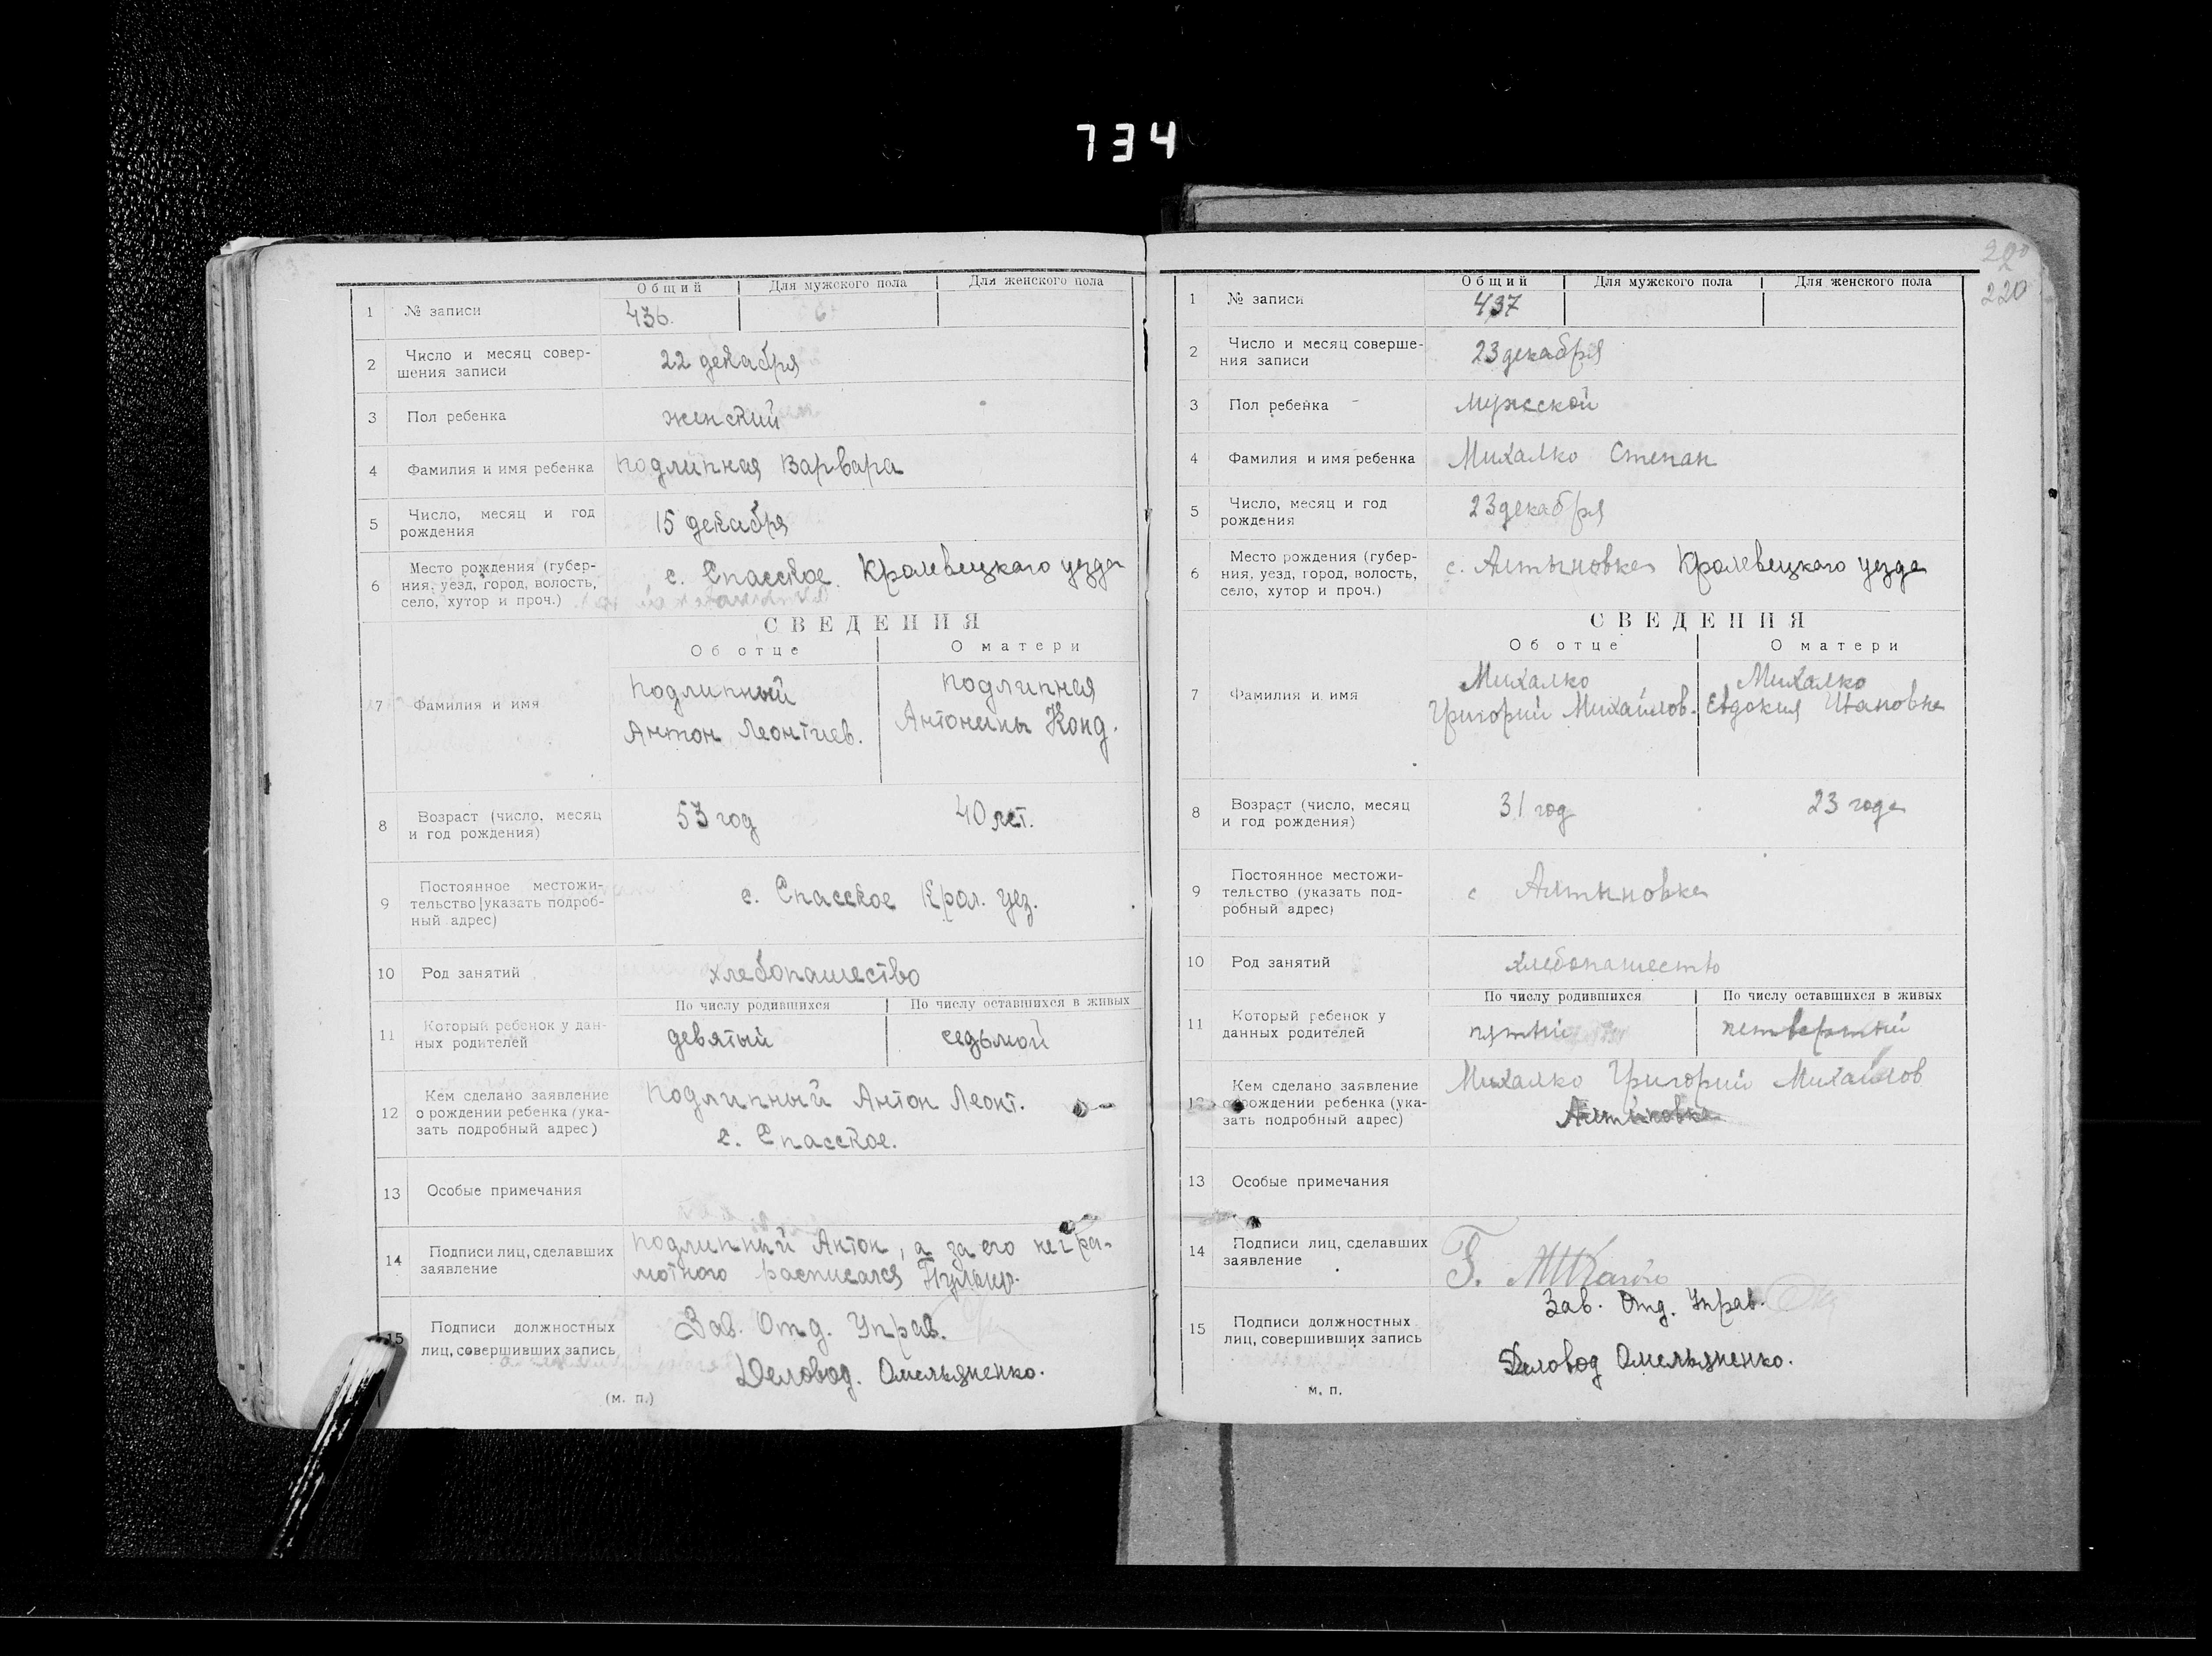 734
1 № записи Общий Для мужского пола Для женского пола
436.
2 Число и месяц совер-
шения записи
22 декабря
3 Пол ребенка женский
4 Фамилия и имя ребенка Подлипная Варвара
5 Число, месяц и год
рождения
15 декабря
6 Место рождения (губер-
ния, уезд, город, волость,
село, хутор и проч.)
с. Спасское. Кролевецкаго уезда
СВЕДЕНИЯ
Об отце О матери
7 Фамилия и имя
Подлипный Подлипная
Антон Леонтиев. Антонины Конд.
8 Возраст (число, месяц
и год рождения)
53 год 40 лет.
9 Постоянное местожи-
тельство (указать подроб-
ный адрес)
с. Спасское Крол. уез.
10 Род занятий хлебопашество
По числу родившихся По числу оставшихся в живых
11 Который ребенок у дан-
ных родителей
девятый седьмой
12 Кем сделано заявление
о рождении ребенка (ука-
зать подробный адрес)
Подлипный Антон Леонт.
с. Спасское.
13 Особые примечания
14 Подписи лиц, сделавших
заявление
Подлипный Антон, а за его негра-
мотного расписался
15 Подписи должностных
лиц, совершивших запись
Зав. Отд. Управ.
Деловод. Омельяненко.
(м. п.)
220
220
1 № записи Общий Для мужского пола Для женского пола
437
2 Число и месяц соверше-
ния записи
23 декабря
3 Пол ребенка мужской
4 Фамилия и имя ребенка Михалко Степан
5 Число, месяц и год
рождения
23 декабря
6 Место рождения (губер-
ния, уезд, город, волость,
село, хутор и проч.)
с. Алтыновка Кролевецкаго уезда
СВЕДЕНИЯ
Об отце О матери
7 Фамилия и имя
Михалко Михалко
Григорий Михайлов. Евдокия Ивановна
8 Возраст (число, месяц
и год рождения)
31 год 23 года
9 Постоянное местожи-
тельство (указать под-
робный адрес)
с Алтыновка
10 Род занятий хлебопашество
По числу родившихся По числу оставшихся в живых
11 Который ребенок у
данных родителей
пятый четвертый
12 Кем сделано заявление
о рождении ребенка (ука-
зать подробный адрес)
Михалко Григорий Михайлов
Алтиновка
13 Особые примечания
14 Подписи лиц, сделавших
заявление
15 Подписи должностных
лиц, совершивших запись
Зав. Отд. Управ.
Деловод Омельяненко.
м. п.